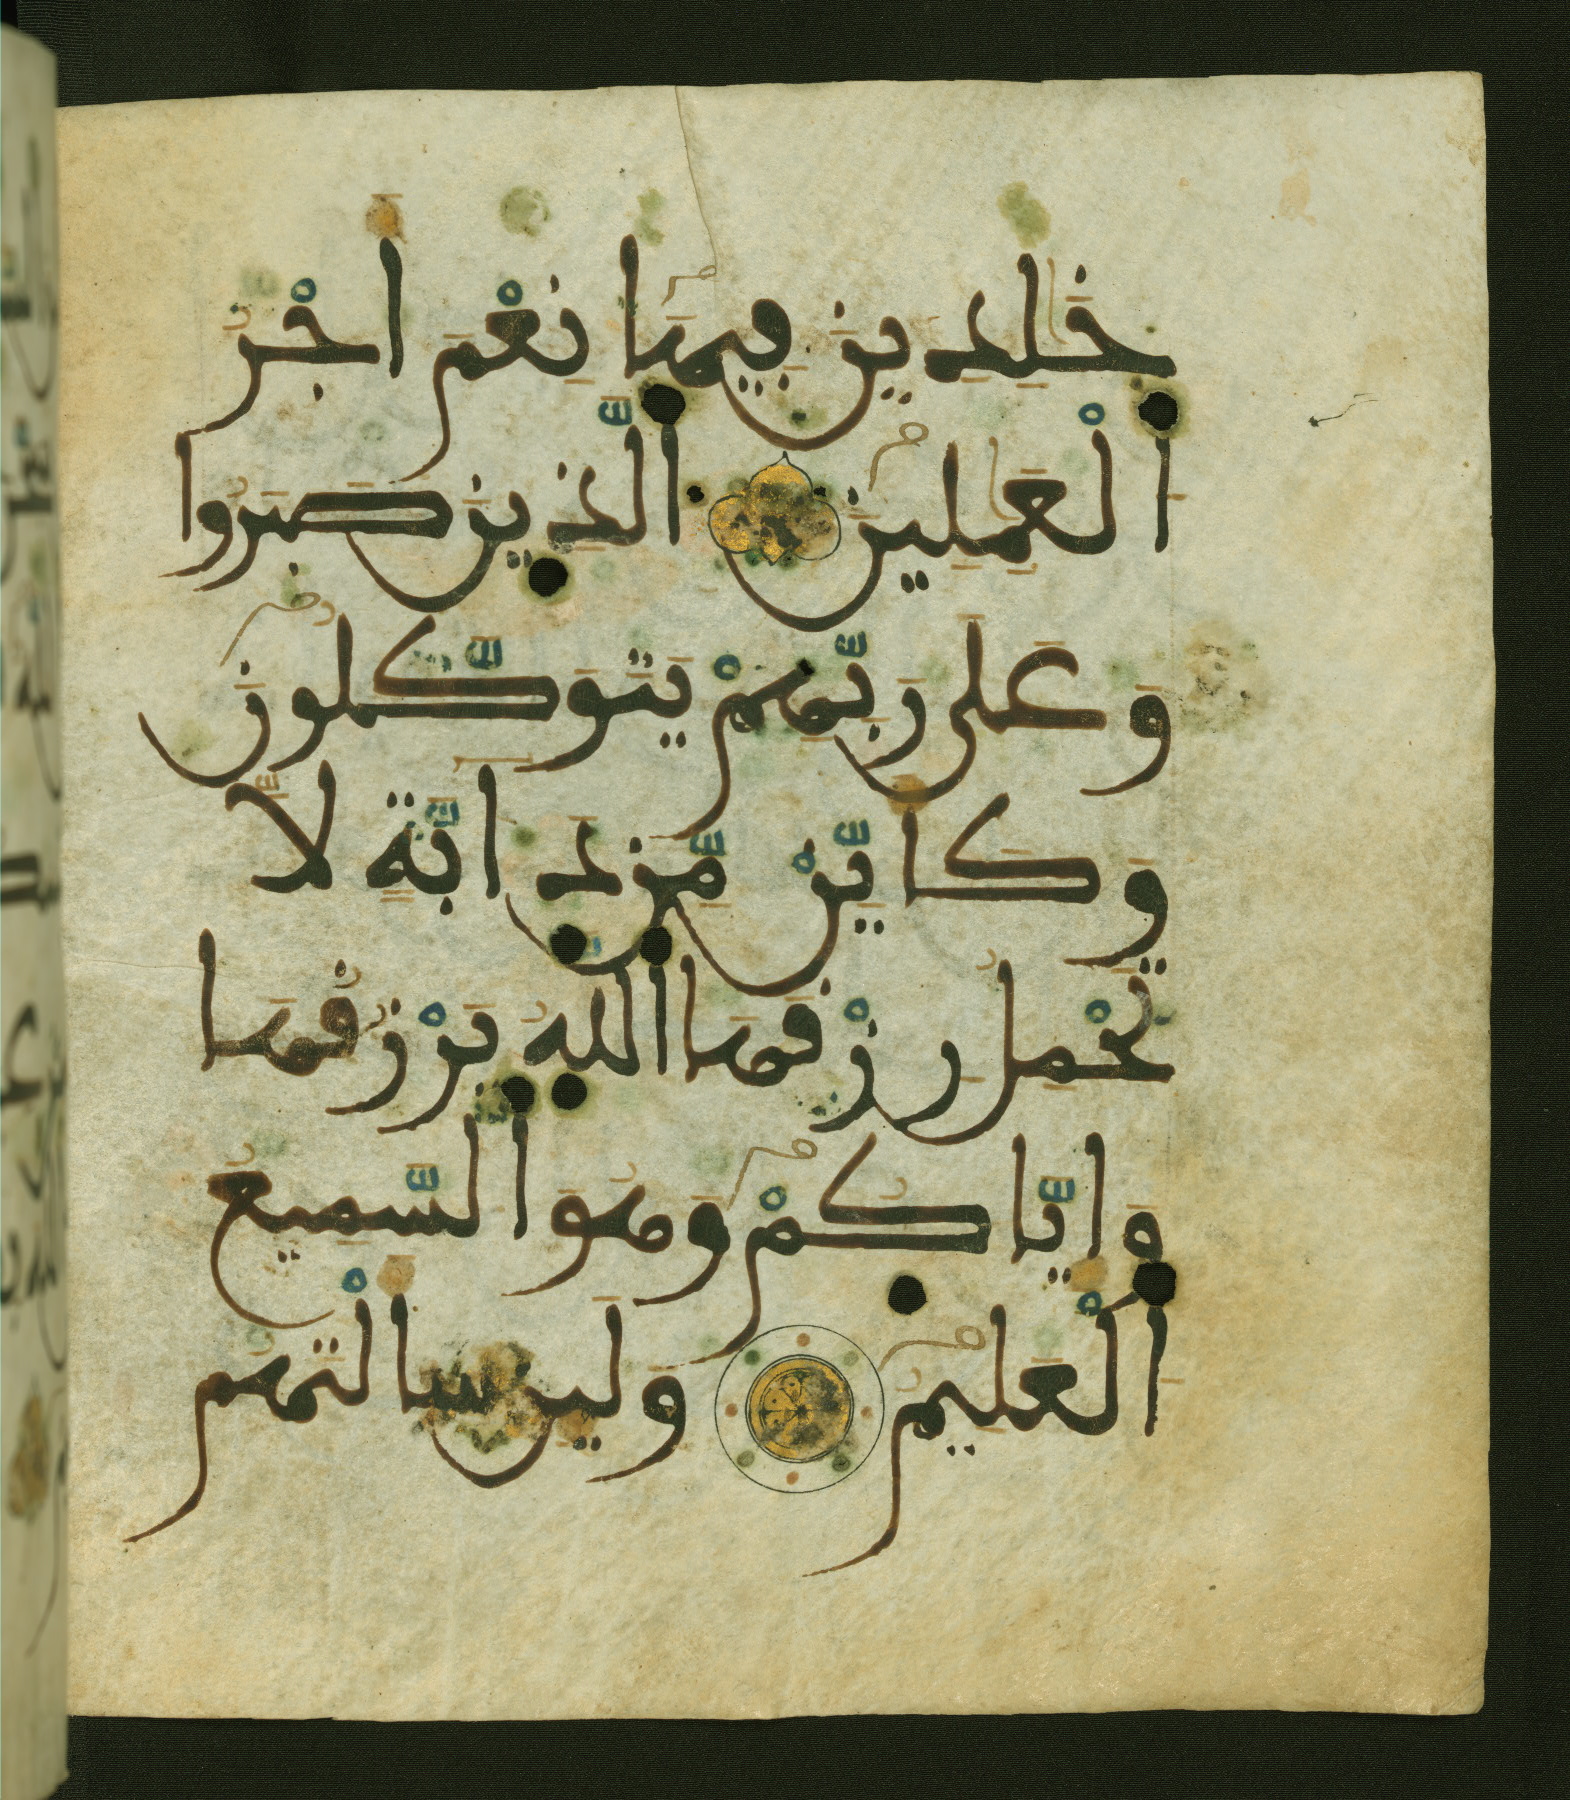 خَٰلِدِينَ فِيهَا نِعْمَ أَجْرُ
اَ۬لْعَٰمِلِينَ اَ۬لذِينَ صَبَرُوا
وَعَلَىٰ رَبِّهِمْ يَتَوَكَّلُونَ
وَكَأَيِّنْ مِّن دَآبَّةٍ لَّا
تَحْمِلُ رِزْقَهَا اَ۬للَّهُ يَرْزُقُهَا
وَإِيَّاكُمْ وَهُوَ اَ۬لسَّمِيعُ
اُ۬لْعَلِيمُ وَلَئِن سَأَلْتَهُم